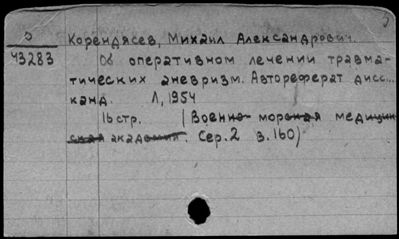 Корендясев, Михаил Александрович.
43283 Об оперативном лечении травма-
тических аневризм. Автореферат дисс...
канд. Л, 1954
16 стр. (Военно-морская медицин
ская академия. Сер. 2 в. 160)